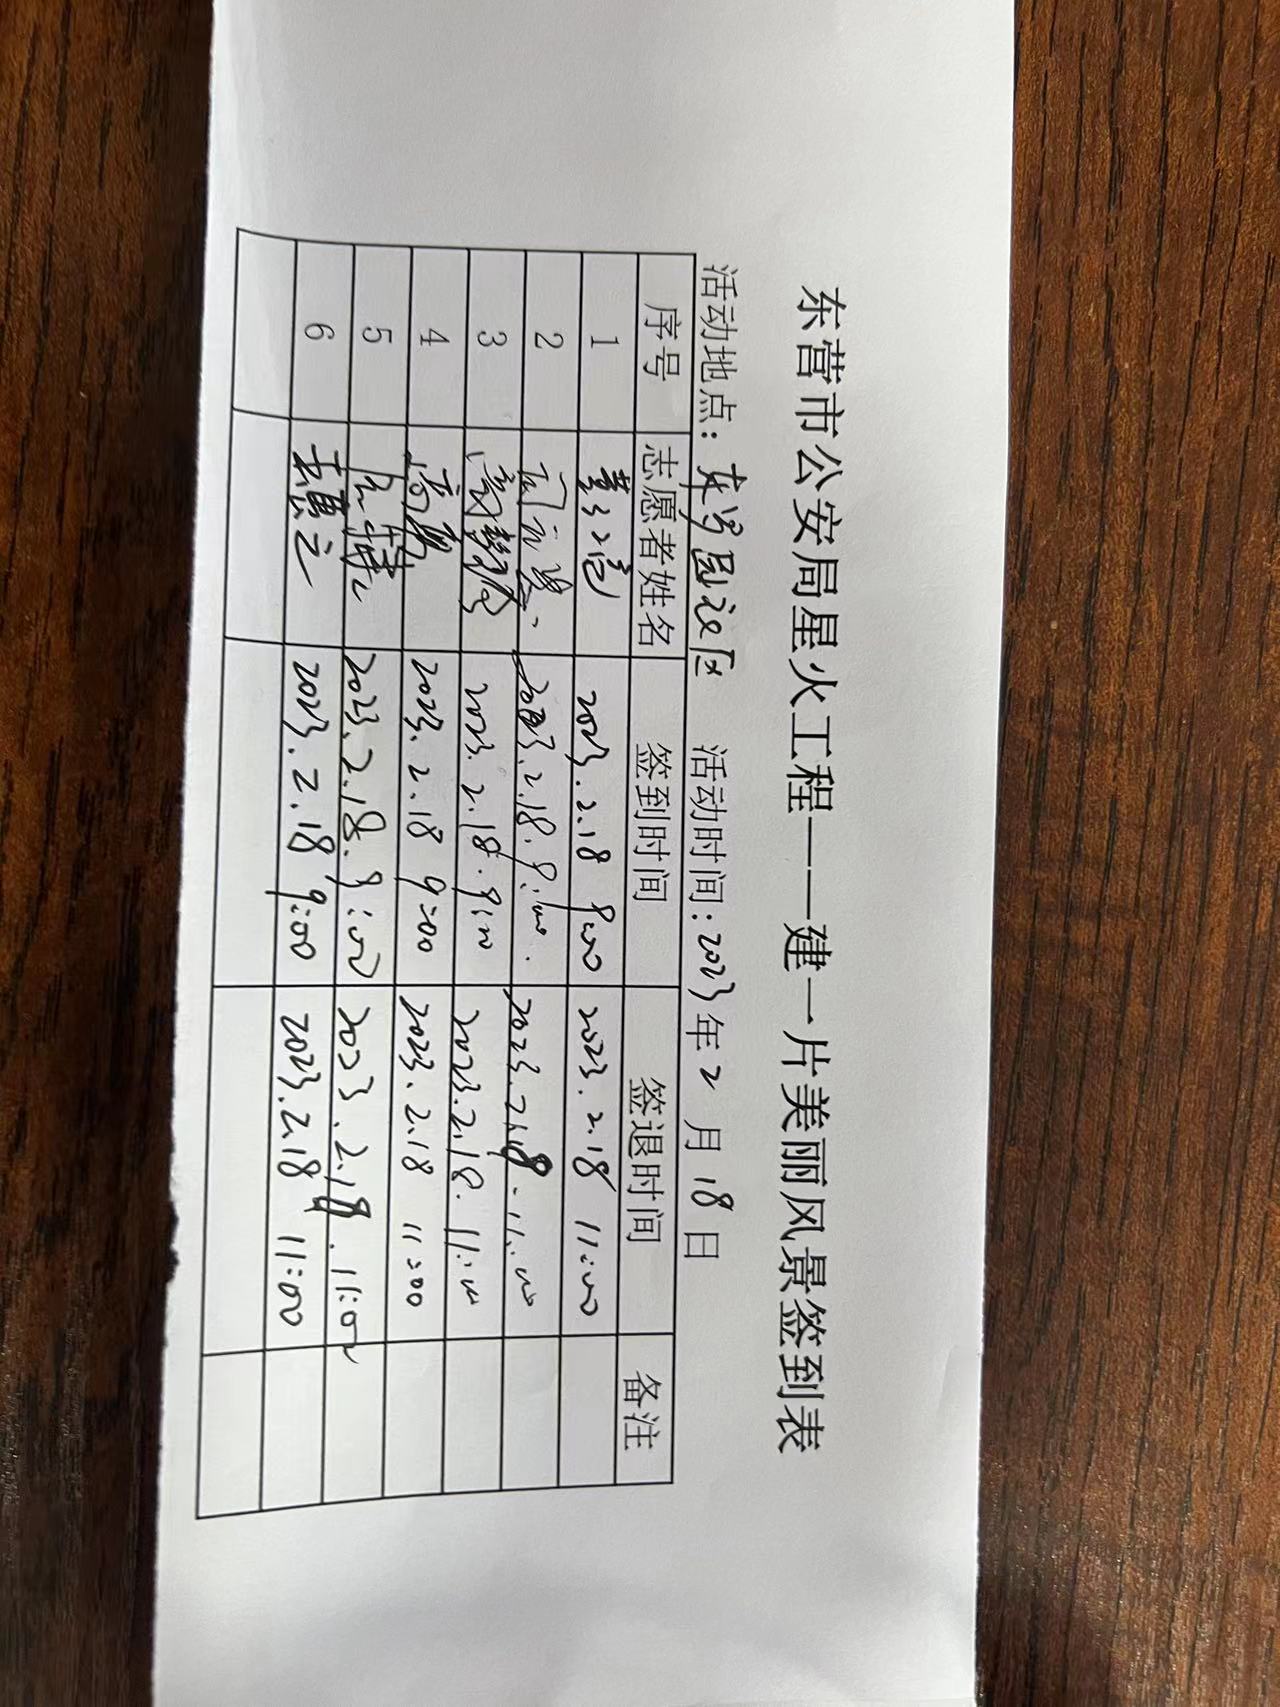 东营市公安局星火工程——建一片美丽风景签到表
活动地点：园社区 活动时间：2023年2月18日
序号 志愿者姓名 签到时间 签退时间 备注
1 2023.2.18 9:00 2023.2.18 11:00
2 2023.2.18.9:00. 2023.2.18.11:00
3 2023.2.18.9:00 2023.2.18.11:00
4 2023.2.18 9:00 2023.2.18 11:00
5 2023.2.18.9:00 2023.2.18.11:00
6 2023.2.18 9:00 2023.2.18 11:00